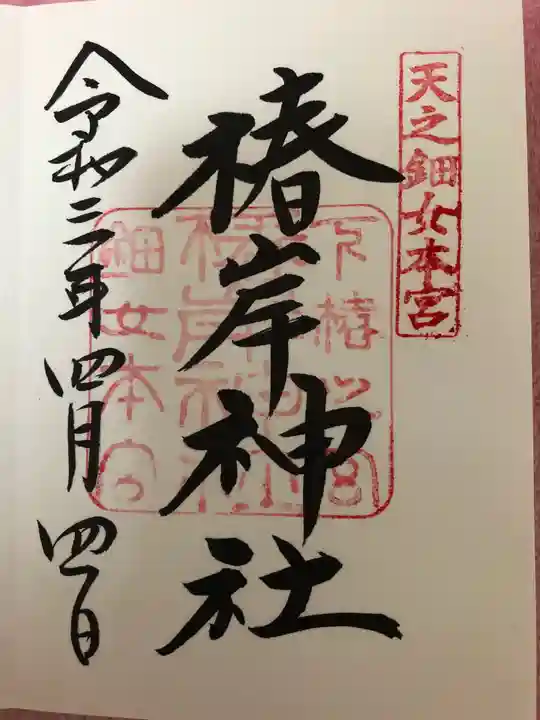 天之鈿女本宮
椿岸神社
下椿之宮
鈿女本宮
令和三年四月四日